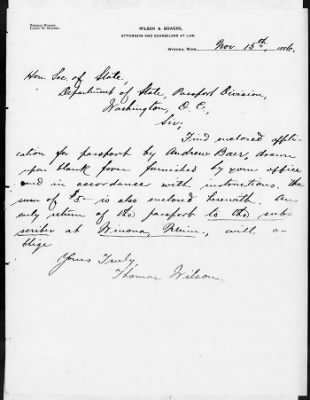 Thomas Wilson.
WILSON & BOWERS,
ATTORNEYS AND COUNSELORS AT LAW.
WINONA, MINN. Nov 15th, 1886.
Hon. Sec. of State,
Department of State, Passport Division,
Washington, D. C.,
Sir;
Find enclosed appli-
cation for passport by Andrew Baer, drawn
upon blank form furnished by your office
and in accordance with instructions. The
sum of $5— is also enclosed herewith. An
early return of the passport to the sub-
scriber at Winona, Minn., will o-
blige
Yours Truly,
Thomas Wilson.